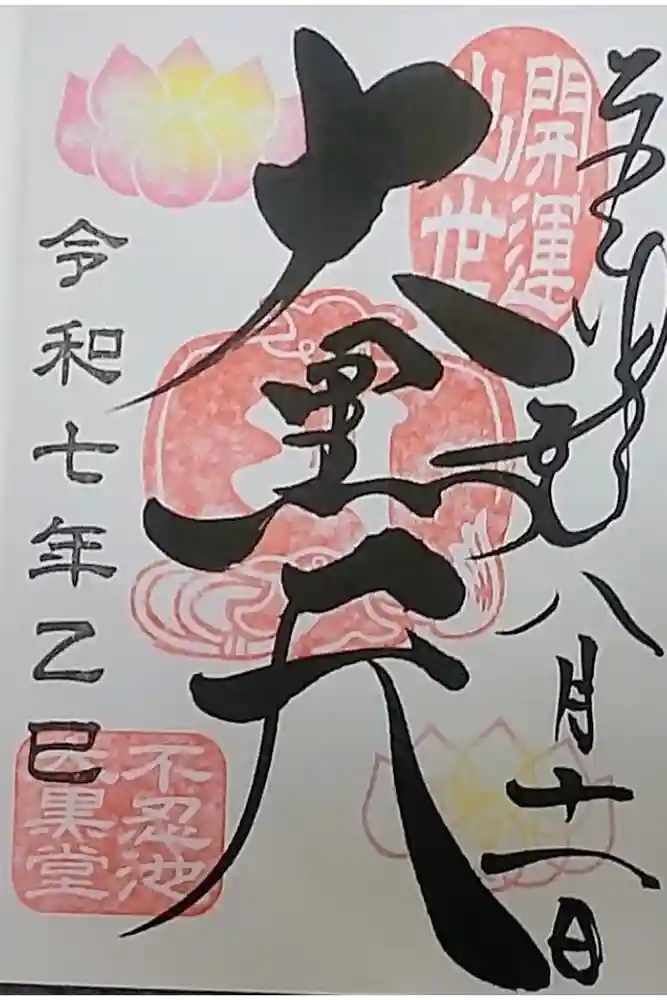 八月十一日
開運
出世
大黒天
令和七年乙巳
不忍池
大黒堂